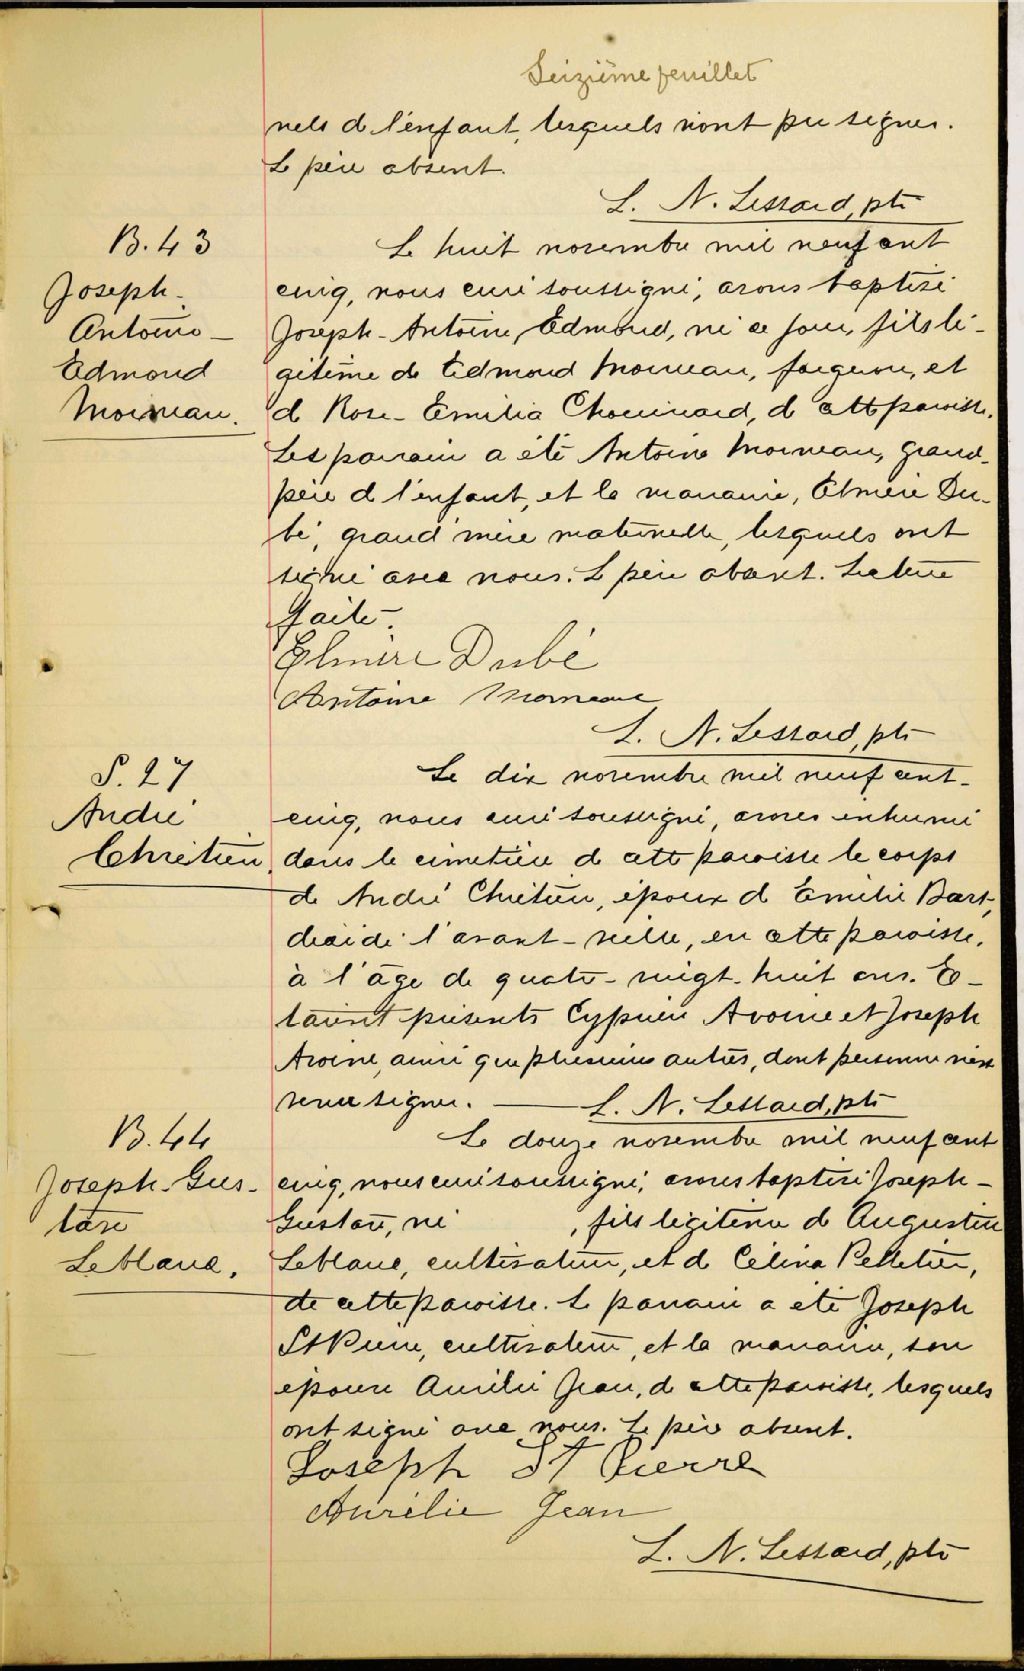 Seizième feuillet
nels de l'enfant, lesquels n'ont pu signer.
Le père absent.
L. N. Lessard, ptr
B. 43
Joseph-
Antoine-
Edmond
Morneau.
Le huit novembre mil neuf cent
cinq, nous curé soussigné, avons baptisé
Joseph-Antoine, Edmond, né ce jour, fils lé-
gitime de Edmond Morneau, forgeron, et
de Rose-Emilia Chouinard, de cette paroisse.
Les parrain a été Antoine Morneau, grand-
père de l'enfant, et la marraine, Elmire Du-
bé, grand'mère maternelle, lesquels ont
signé avec nous. Le père absent. Lecture
faite.
Elmire Dubé
Antoine Morneau
L. N. Lessard, ptr
S. 27
André
Chrétien
Le dix novembre mil neuf cent-
cinq, nous curé soussigné, avons inhumé
dans le cimetière de cette paroisse le corps
de André Chrétien, époux de Emilie
décédé l'avant-veille, en cette paroisse,
à l'âge de quatre-vingt-huit ans. E-
taient présents Cyprien Avoine et Joseph
Avoine, ainsi que plusieurs autres, dont personne n'a
signer. L. N. Lessard, ptr
B. 44
Joseph-Gus-
tave
Leblanc.
Le douze novembre mil neuf cent
cinq, nous curé soussigné, avons baptisé Joseph-
Gustave, né , fils légitime de Augustin
Leblanc, cultivateur, et de Célina Pelletier,
de cette paroisse. Le parrain a été Joseph
St Pierre, cultivateur, et la marraine, son
épouse Aurélie Jean, de cette paroisse, lesquels
ont signé avec nous. Le père absent.
Joseph St Pierre
Aurélie Jean
L. N. Lessard, ptr